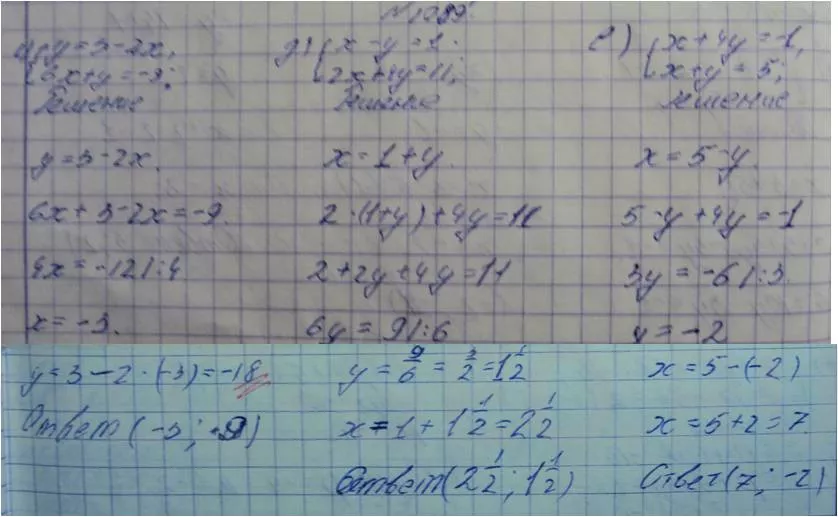 №1089.
y=3-2x,
6x+y=-9;
Решение
y=3-2x.
6x+3-2x=-9.
4x=-12|:4
x=-3.
y=3-2·(-3)=-18
Ответ(-3; 9)
д) x-y=1.
2x+4y=11;
Решение
x=1+y.
2·(1+y)+4y=11
2+2y+4y=11
6y=9|:6
y=9/6=3/2=1 1/2
x=1+1 1/2=2 1/2
Ответ(2 1/2; 1 1/2)
е) x+4y=-1,
x+y=5;
Решение
x=5-y.
5-y+4y=-1
3y=-6|:3
y=-2
x=5-(-2)
x=5+2=7
Ответ(7; -2)